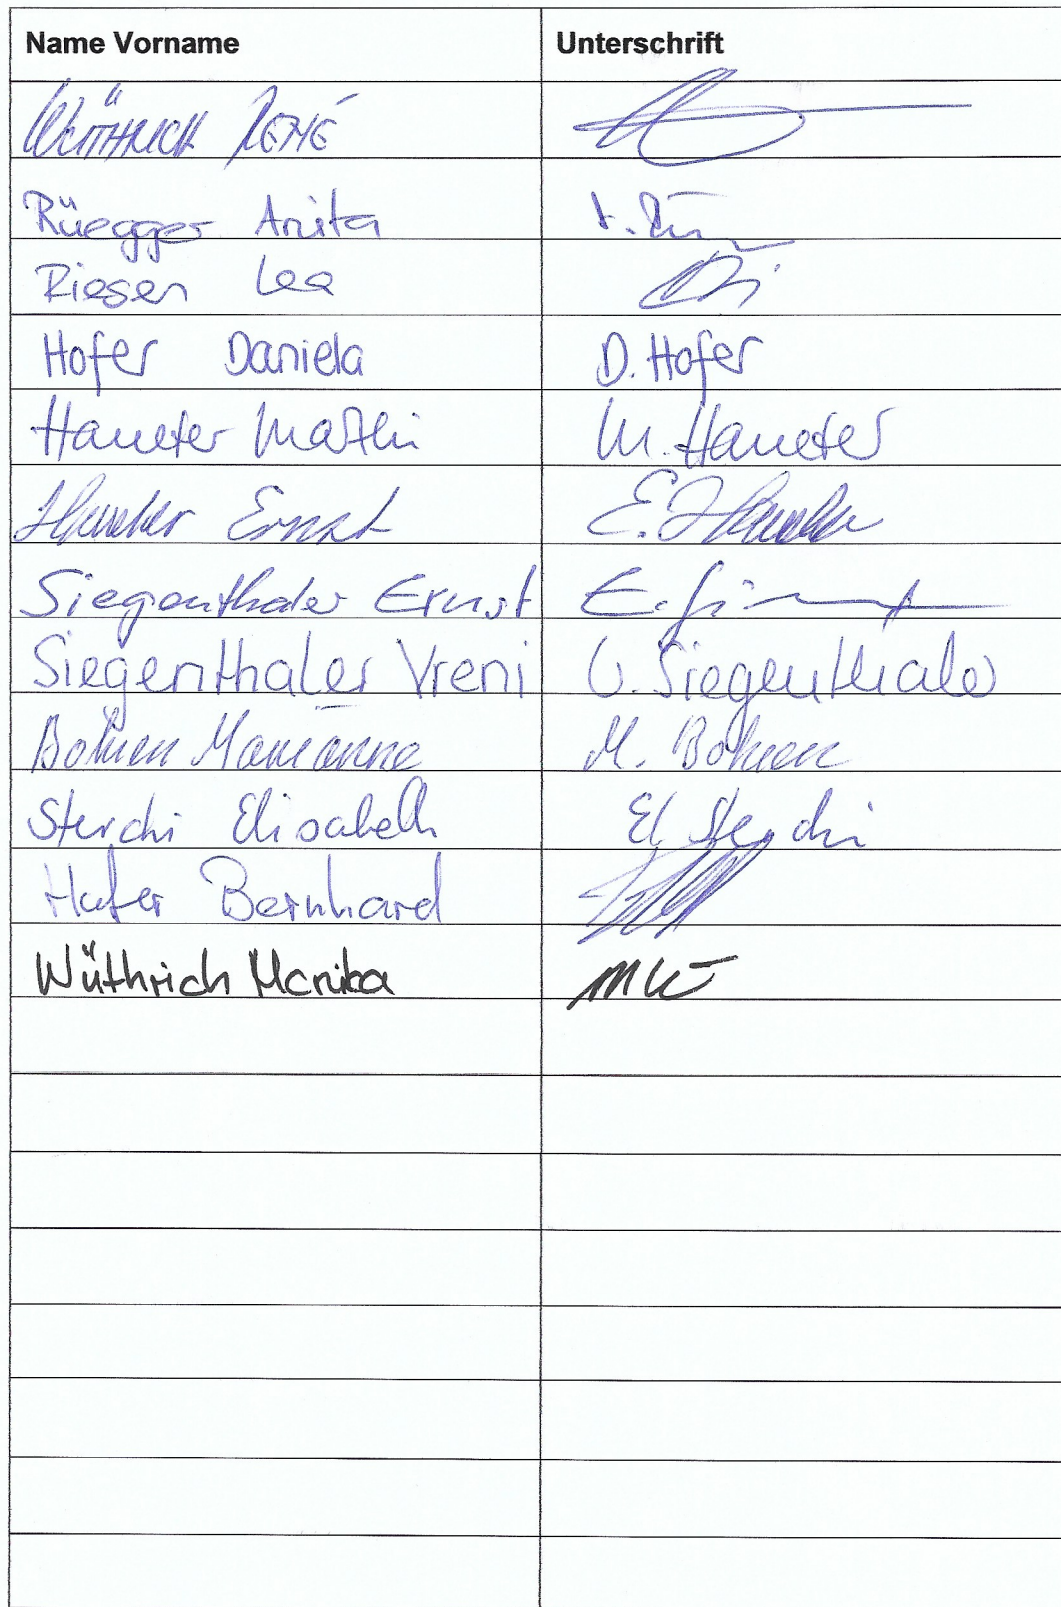 Name Vorname Unterschrift
WÜTHRICH RENÉ
Rüegger Anita A. Rü
Riesen Lea
Hofer Daniela D. Hofer
Haueter M. Haueter
Haueter Ernst E. Haueter
Siegenthaler Ernst E.
Siegenthaler Vreni V. Siegenthaler
Bohren Marianne M. Bohren
Sterchi Elisabeth El. Sterchi
Hofer Bernhard
Wüthrich Monika MW